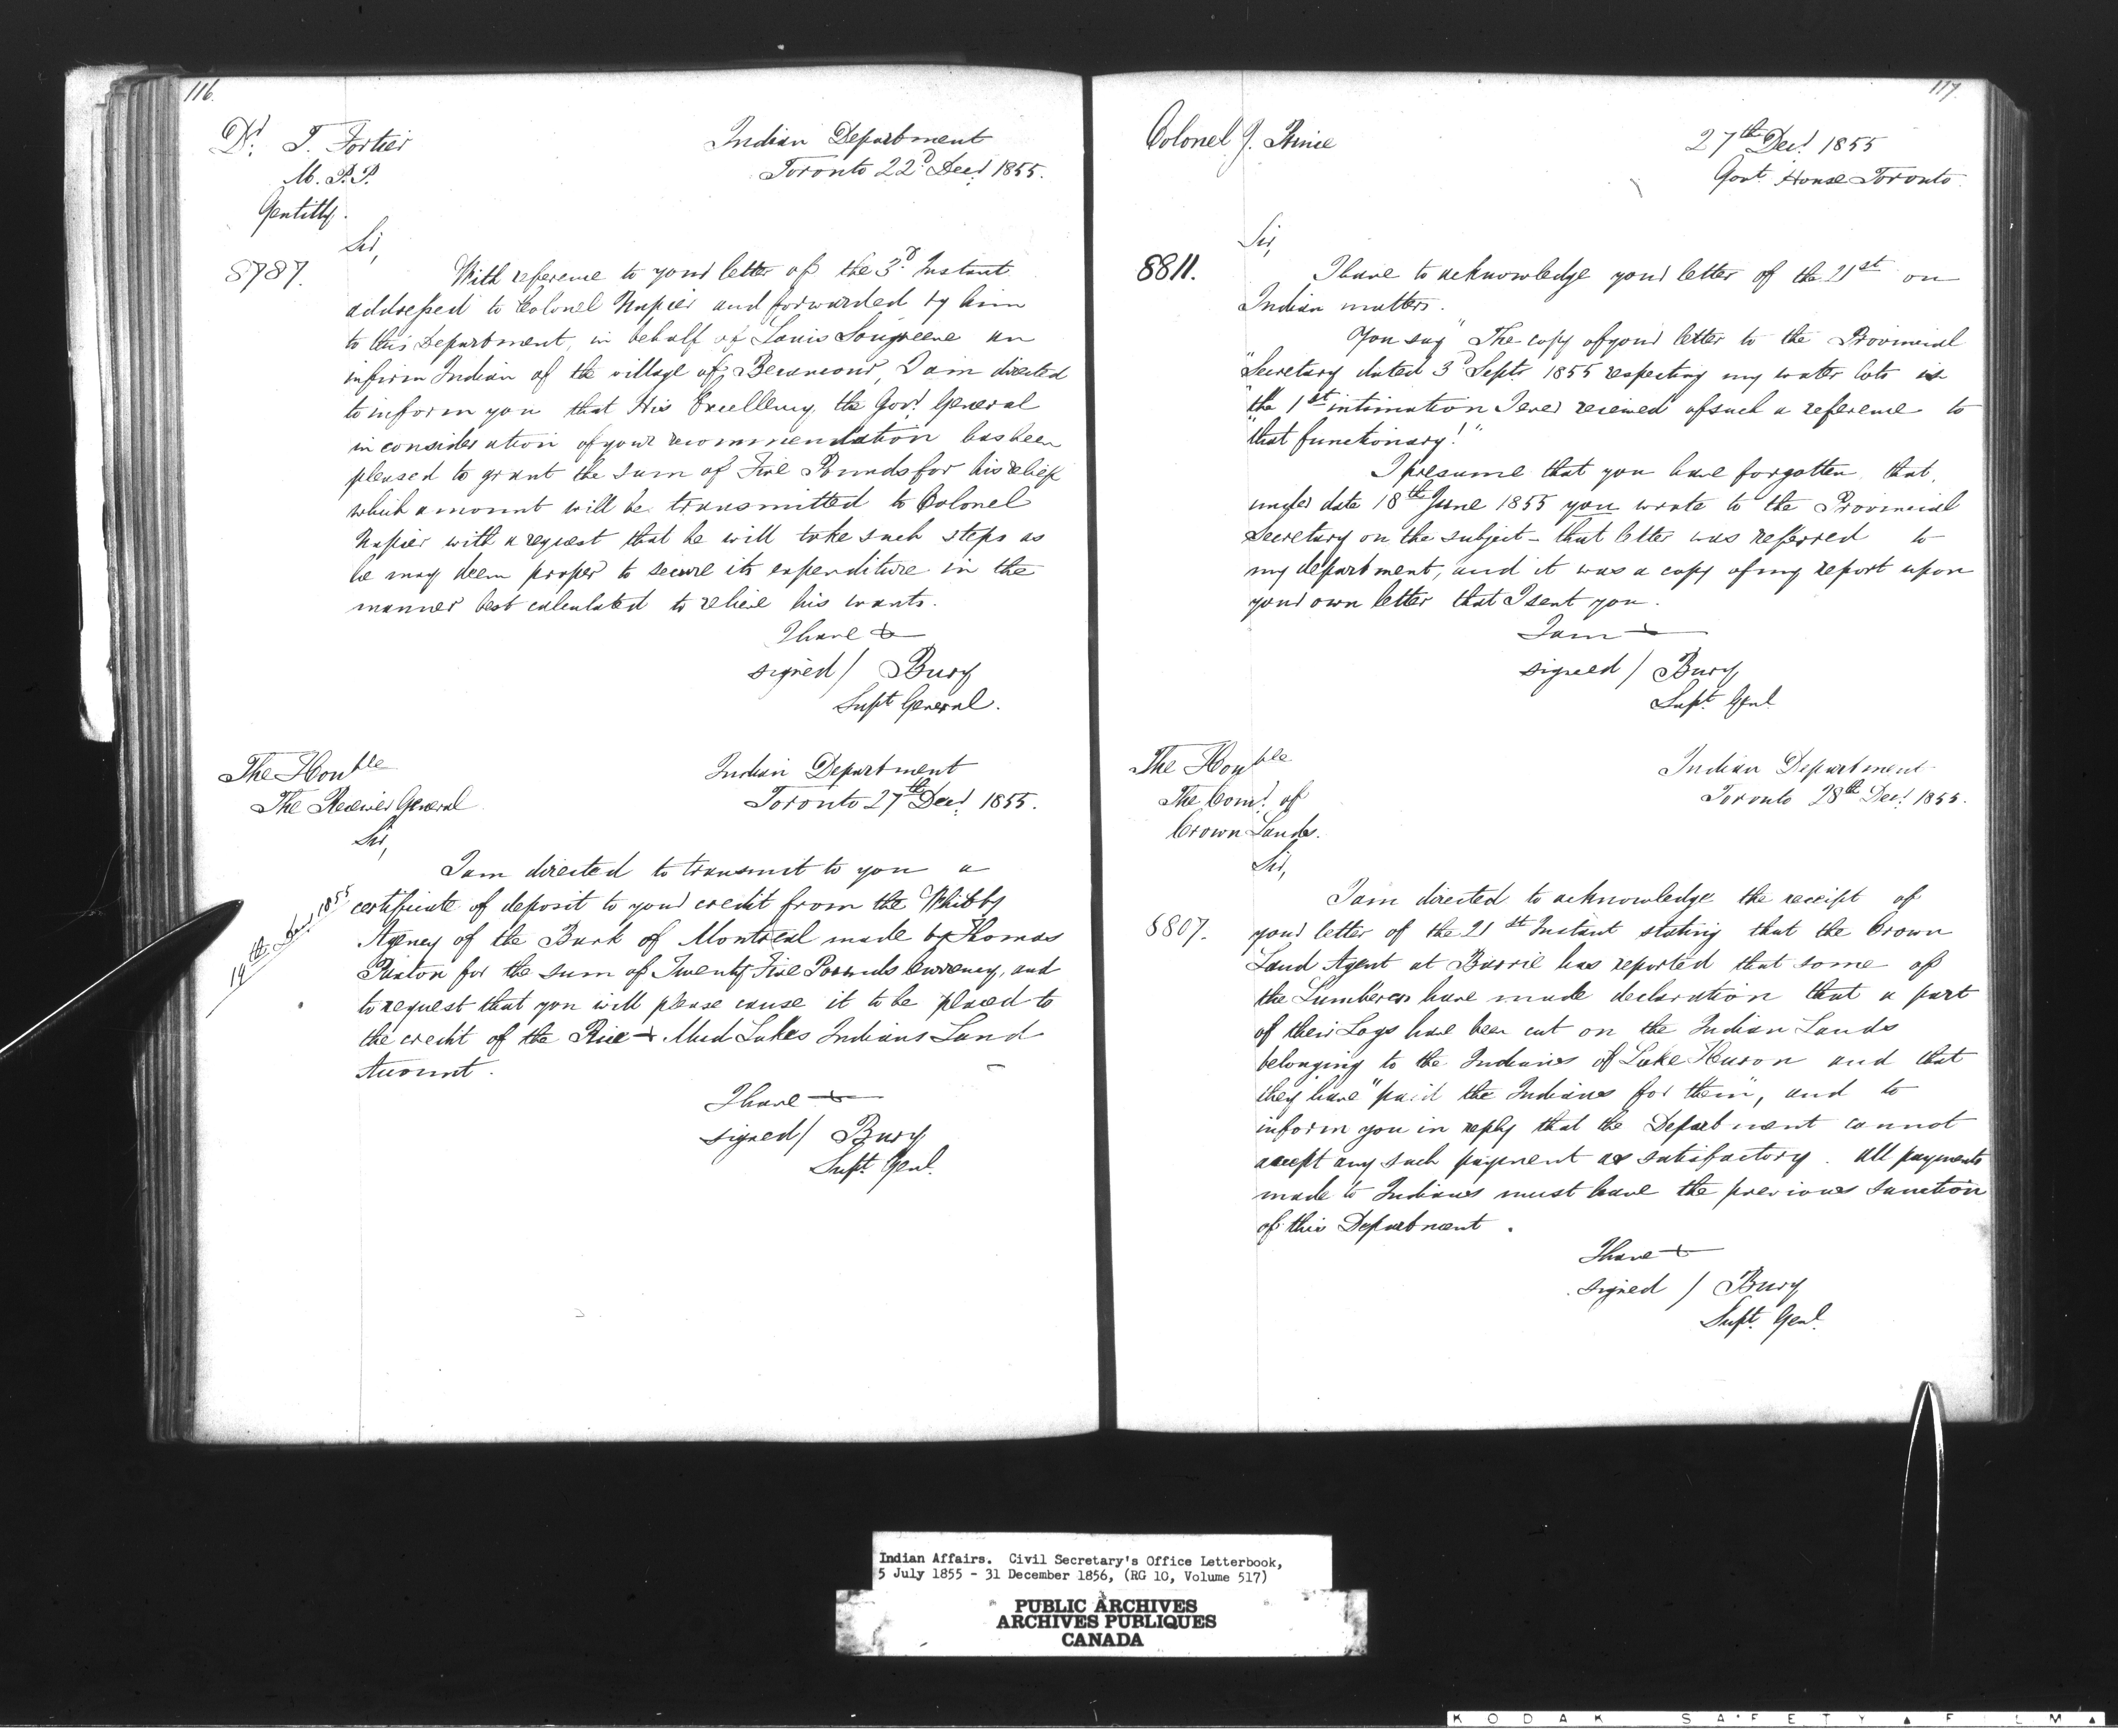 116.
Dr. T. Fortier
M.P.P.
Gentilly.
Indian Department
Toronto 22d Decr. 1855.
Sir,
8787.
With reference to your letter of the 3d. Instant
addressed to Colonel Napier and forwarded by him
to this Department, in behalf of Louis an
infirm Indian of the village of Becancour, I am directed
to inform you that His Excellency the Govr. General
in consideration of your recommendation has been
pleased to grant the sum of Five Pounds for his relief
which amount will be transmitted to Colonel
Napier with a request that he will take such steps as
he may deem proper to secure its expenditure in the
manner best calculated to relieve his wants.
I have &
signed / Bury
Supt General.
The Honble
The Receiver General
Indian Department
Toronto 27th Decr. 1855.
Sir,
19th Decr 1855
I am directed to transmit to you a
certificate of deposit to your credit from the Whitby
Agency of the Bank of Montreal made by Thomas
Paxton for the sum of Twenty Five Pounds currency, and
to request that you will please cause it to be placed to
the credit of the Rice & Mud Lakes Indians Land
Account.
I have &
signed / Bury
Supt. Genl.
117.
Colonel J. Prince
27th Decr. 1855
Govt. House Toronto.
Sir,
8811.
I have to acknowledge your letter of the 21st on
Indian matters.
You say "The copy of your letter to the Provincial
"Secretary dated 3d Sept. 1855 respecting my water lots is
"the 1st intimation I ever received of such a reference to
"that functionary!"
I presume that you have forgotten that,
under date 18th June 1855 you wrote to the Provincial
Secretary on the subject - that letter was referred to
my department, and it was a copy of my report upon
your own letter that I sent you.
I am &
signed / Bury
Supt. Genl
The Honble
The Comr. of
Crown Lands.
Indian Department
Toronto 28th Decr. 1855.
Sir,
8807.
I am directed to acknowledge the receipt of
your letter of the 21st Instant stating that the Crown
Land Agent at Barrie has reported that some of
the Lumberers have made declaration that a part
of their Logs have been cut on the Indian Lands
belonging to the Indians of Lake Huron and that
they have "paid the Indians for them", and to
inform you in reply that the Department cannot
accept any such payment as satisfactory. All payments
made to Indians must have the previous sanction
of this Department.
I have &
signed / Bury
Supt. Genl.
Indian Affairs. Civil Secretary's Office Letterbook,
5 July 1855 - 31 December 1856, (RG 10, Volume 517)
PUBLIC ARCHIVES
ARCHIVES PUBLIQUES
CANADA
KODAK SAFETY FILM